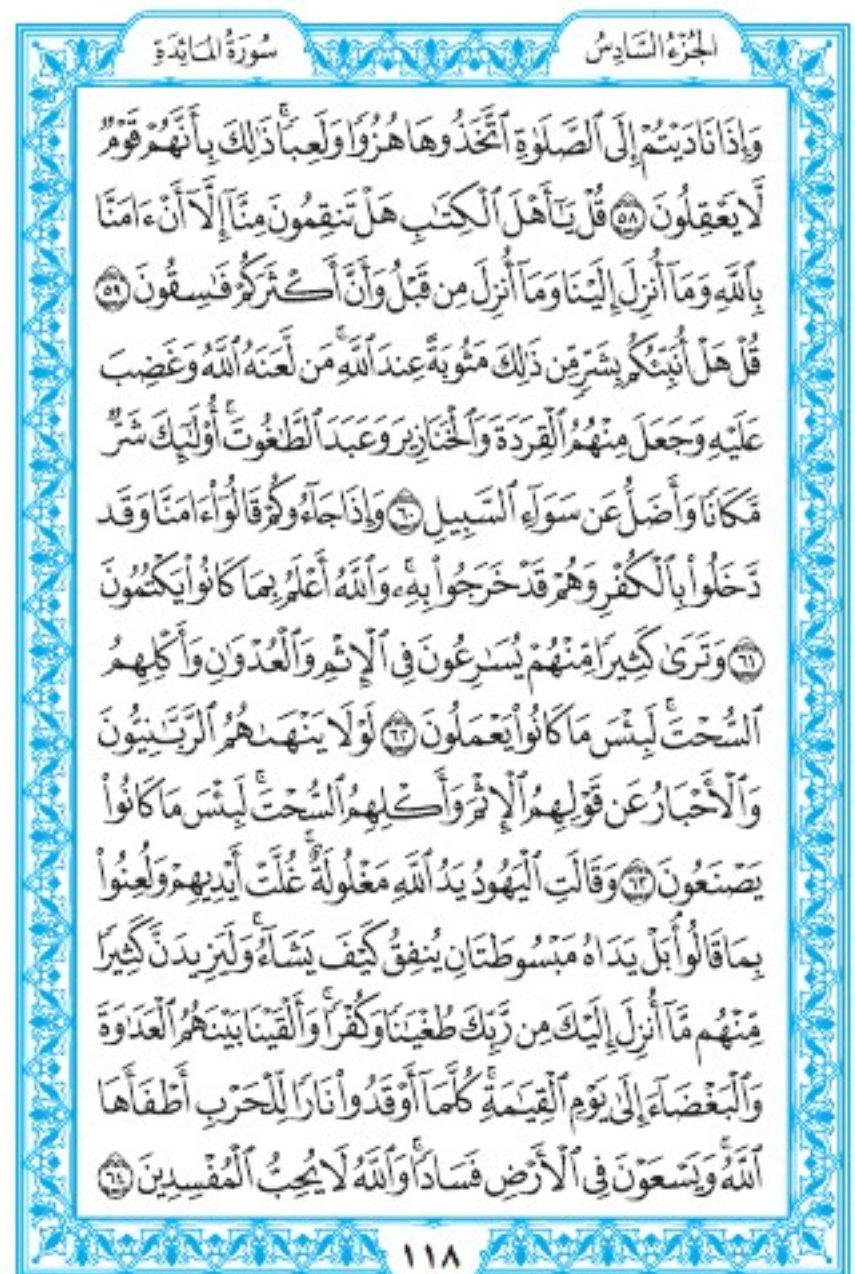 الجُزْءُ السَّادِسُ
سُورَةُ المَائِدَةِ
وَإِذَا نَادَيْتُمْ إِلَى ٱلصَّلَوٰةِ ٱتَّخَذُوهَا هُزُوٗا وَلَعِبٗاۚ ذَٰلِكَ بِأَنَّهُمْ قَوْمٞ
لَّا يَعْقِلُونَ ٥٨ قُلْ يَـٰٓأَهْلَ ٱلْكِتَـٰبِ هَلْ تَنقِمُونَ مِنَّآ إِلَّآ أَنْ ءَامَنَّا
بِٱللَّهِ وَمَآ أُنزِلَ إِلَيْنَا وَمَآ أُنزِلَ مِن قَبْلُ وَأَنَّ أَكْثَرَكُمْ فَـٰسِقُونَ ٥٩
قُلْ هَلْ أُنَبِّئُكُم بِشَرّٖ مِّن ذَٰلِكَ مَثُوبَةً عِندَ ٱللَّهِۚ مَن لَّعَنَهُ ٱللَّهُ وَغَضِبَ
عَلَيْهِ وَجَعَلَ مِنْهُمُ ٱلْقِرَدَةَ وَٱلْخَنَازِيرَ وَعَبَدَ ٱلطَّـٰغُوتَۚ أُوْلَـٰٓئِكَ شَرّٞ
مَّكَانٗا وَأَضَلُّ عَن سَوَآءِ ٱلسَّبِيلِ ٦٠ وَإِذَا جَآءُوكُمْ قَالُوٓاْ ءَامَنَّا وَقَد
دَّخَلُواْ بِٱلْكُفْرِ وَهُمْ قَدْ خَرَجُواْ بِهِۦۚ وَٱللَّهُ أَعْلَمُ بِمَا كَانُواْ يَكْتُمُونَ
٦١ وَتَرَىٰ كَثِيرٗا مِّنْهُمْ يُسَـٰرِعُونَ فِى ٱلْإِثْمِ وَٱلْعُدْوَٰنِ وَأَكْلِهِمُ
ٱلسُّحْتَۚ لَبِئْسَ مَا كَانُواْ يَعْمَلُونَ ٦٢ لَوْلَا يَنْهَىٰهُمُ ٱلرَّبَّـٰنِيُّونَ
وَٱلْأَحْبَارُ عَن قَوْلِهِمُ ٱلْإِثْمَ وَأَكْلِهِمُ ٱلسُّحْتَۚ لَبِئْسَ مَا كَانُواْ
يَصْنَعُونَ ٦٣ وَقَالَتِ ٱلْيَهُودُ يَدُ ٱللَّهِ مَغْلُولَةٌۚ غُلَّتْ أَيْدِيهِمْ وَلُعِنُواْ
بِمَا قَالُواْۘ بَلْ يَدَاهُ مَبْسُوطَتَانِ يُنفِقُ كَيْفَ يَشَآءُۚ وَلَيَزِيدَنَّ كَثِيرٗا
مِّنْهُم مَّآ أُنزِلَ إِلَيْكَ مِن رَّبِّكَ طُغْيَـٰنٗا وَكُفْرٗاۚ وَأَلْقَيْنَا بَيْنَهُمُ ٱلْعَدَٰوَةَ
وَٱلْبَغْضَآءَ إِلَىٰ يَوْمِ ٱلْقِيَـٰمَةِۚ كُلَّمَآ أَوْقَدُواْ نَارٗا لِّلْحَرْبِ أَطْفَأَهَا
ٱللَّهُۚ وَيَسْعَوْنَ فِى ٱلْأَرْضِ فَسَادٗاۚ وَٱللَّهُ لَا يُحِبُّ ٱلْمُفْسِدِينَ ٦٤
١١٨